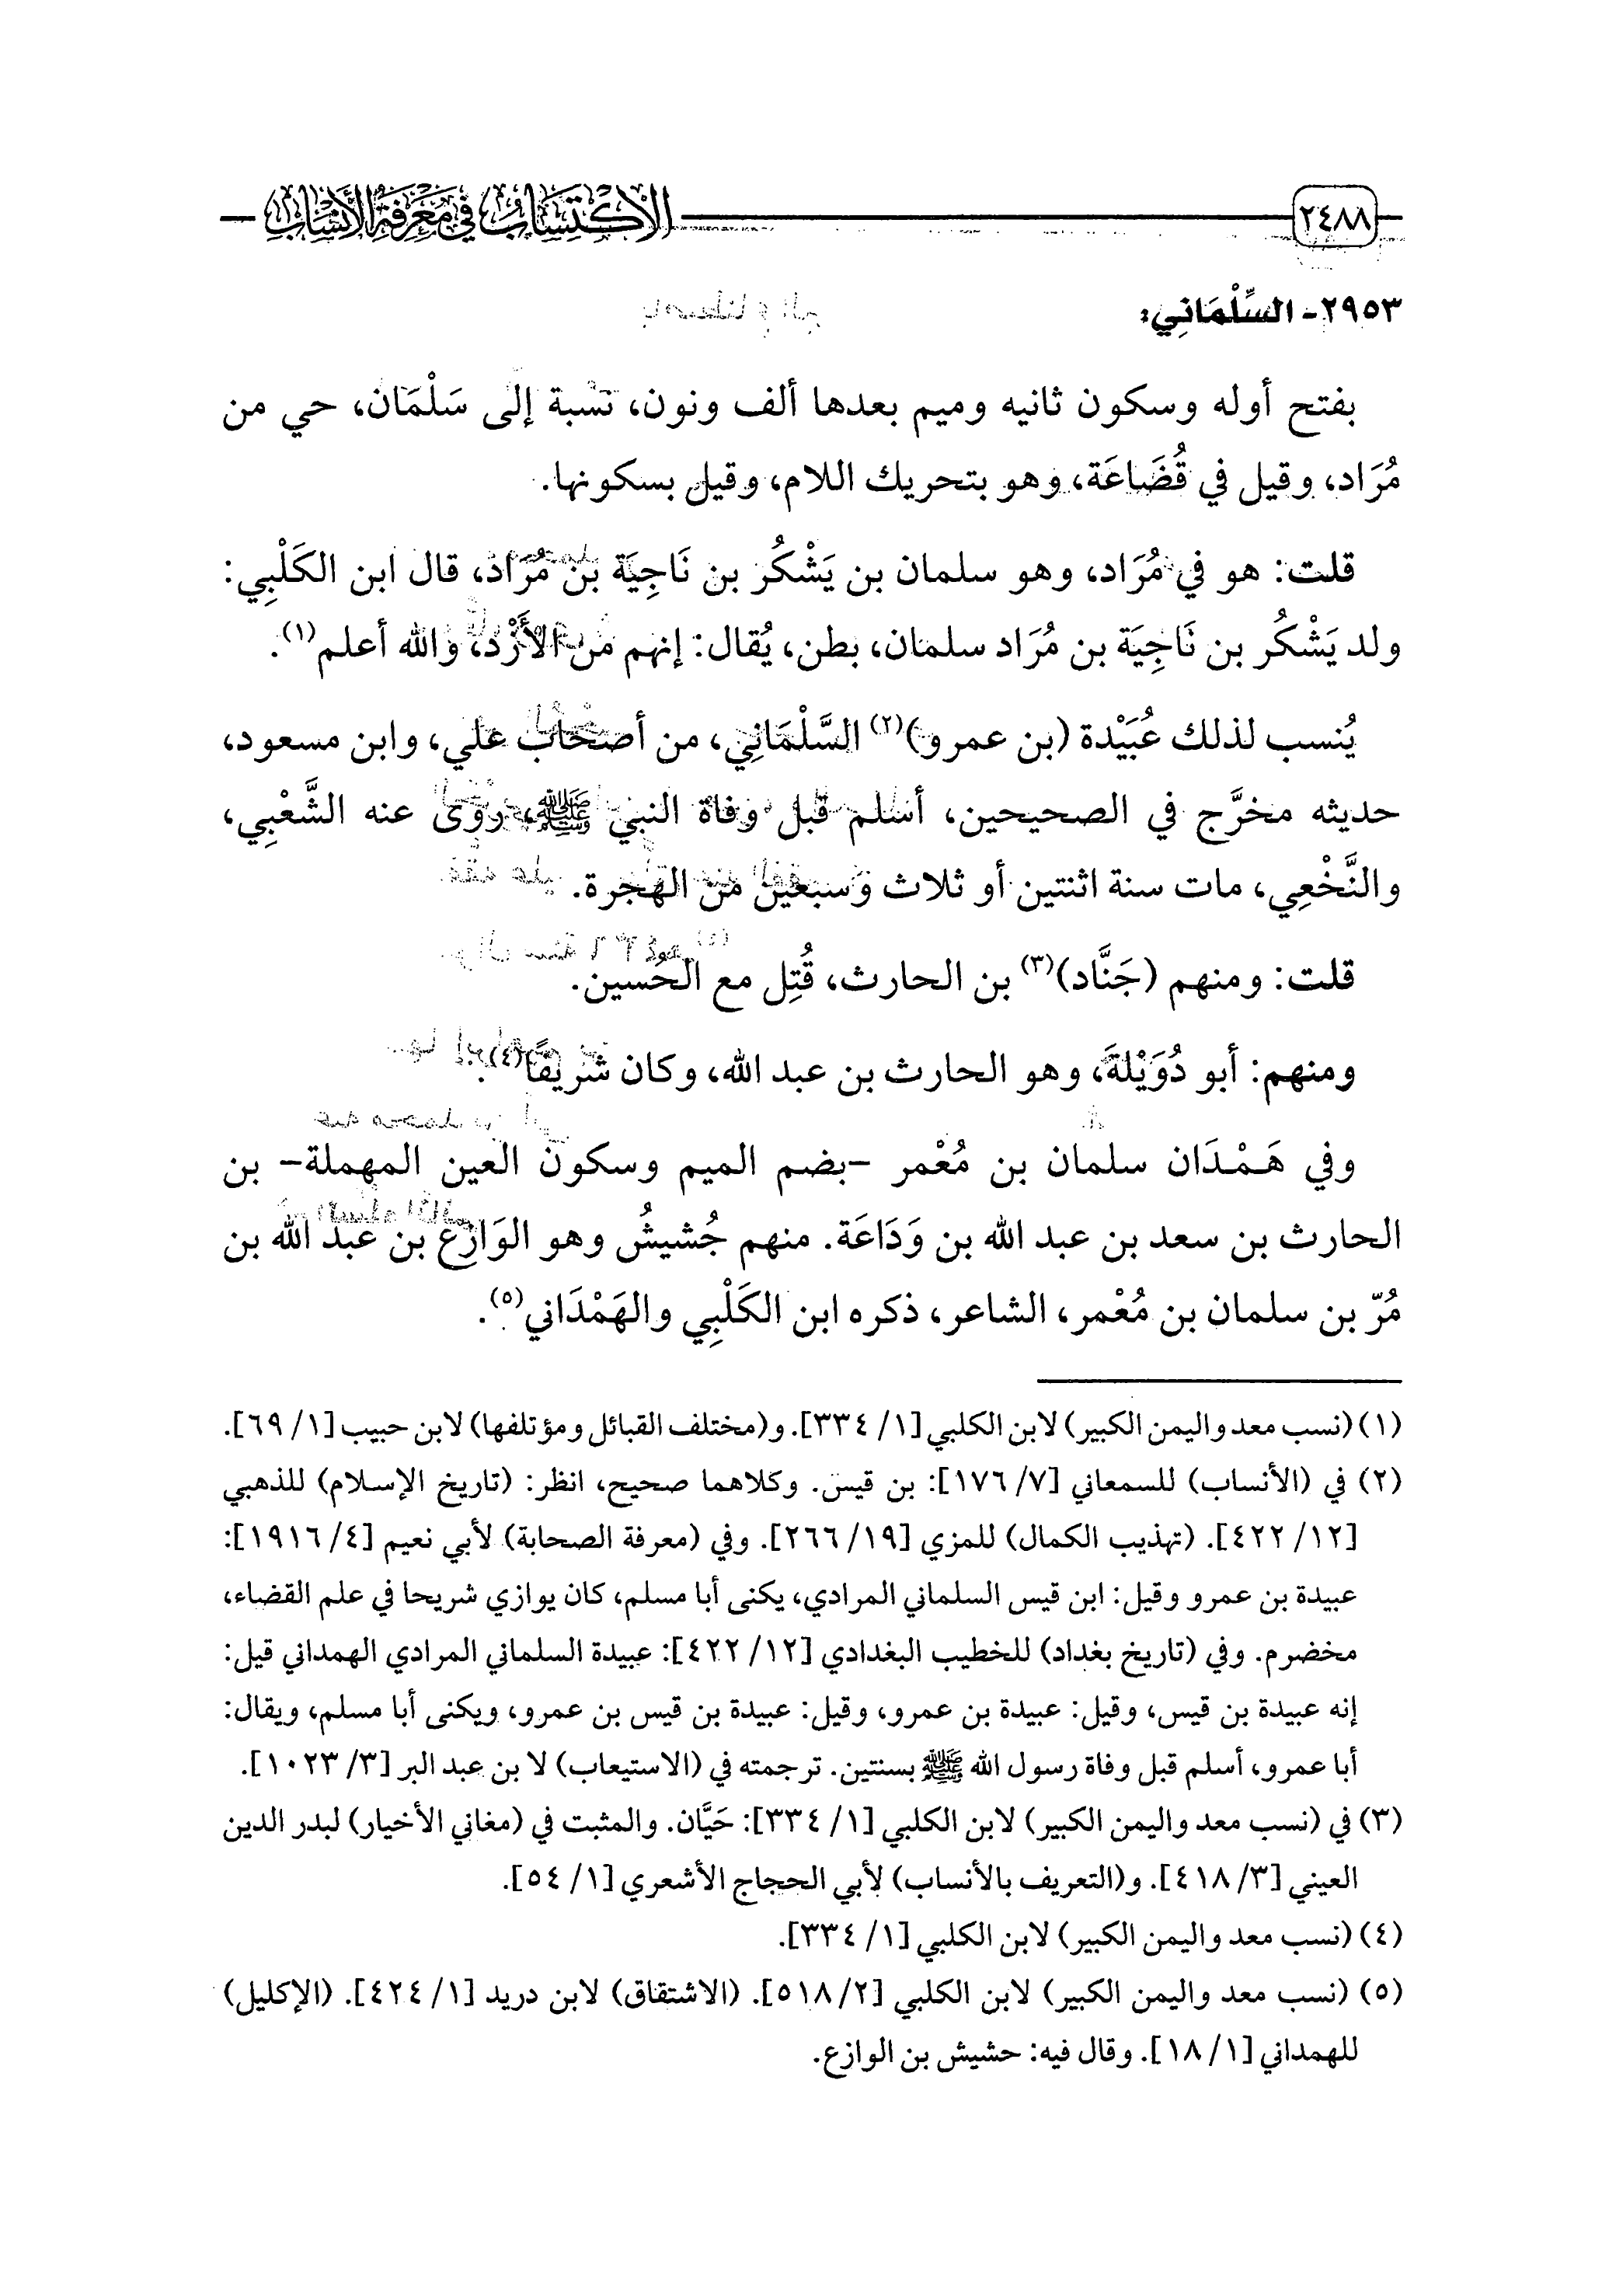 ٢٤٨٨
الاكتساب في معرفة الأنساب
٢٩٥٣- السِّلْمَاني:
بفتح أوله وسكون ثانيه وميم بعدها ألف ونون، نسبة إلى سَلْمَان، حي من
مُرَاد، وقيل في قُضَاعَة، وهو بتحريك اللام، وقيل بسكونها.
قلت: هو في مُرَاد، وهو سلمان بن يَشْكُر بن نَاجِيَة بن مُرَاد، قال ابن الكَلْبِي:
ولد يَشْكُر بن نَاجِيَة بن مُرَاد سلمان، بطن، يُقال: إنهم من الأَزْد، والله أعلم(١).
يُنسب لذلك عُبَيْدة (بن عمرو)(٢) السَّلْمَانِي، من أصحاب علي، وابن مسعود،
حديثه مخرَّج في الصحيحين، أسلم قبل وفاة النبي ﷺ، روى عنه الشَّعْبِي،
والنَّخْعِي، مات سنة اثنتين أو ثلاث وسبعين من الهجرة.
قلت: ومنهم (جَنَّاد)(٣) بن الحارث، قُتِل مع الحُسين.
ومنهم: أبو دُوَيْلةَ، وهو الحارث بن عبد الله، وكان شريفًا(٤).
وفي هَمْدَان سلمان بن مُعْمر -بضم الميم وسكون العين المهملة- بن
الحارث بن سعد بن عبد الله بن وَدَاعَة. منهم جُشيشُ وهو الوَازع بن عبد الله بن
مُرّ بن سلمان بن مُعْمر، الشاعر، ذكره ابن الكَلْبِي والهَمْدَاني(٥).
(١) (نسب معد واليمن الكبير) لابن الكلبي [١/ ٣٣٤]. و(مختلف القبائل ومؤتلفها) لابن حبيب [١/ ٦٩].
(٢) في (الأنساب) للسمعاني [٧/ ١٧٦]: بن قيس. وكلاهما صحيح، انظر: (تاريخ الإسلام) للذهبي
[١٢/ ٤٢٢]. (تهذيب الكمال) للمزي [١٩/ ٢٦٦]. وفي (معرفة الصحابة) لأبي نعيم [٤/ ١٩١٦]:
عبيدة بن عمرو وقيل: ابن قيس السلماني المرادي، يكنى أبا مسلم، كان يوازي شريحا في علم القضاء،
مخضرم. وفي (تاريخ بغداد) للخطيب البغدادي [١٢/ ٤٢٢]: عبيدة السلماني المرادي الهمداني قيل:
إنه عبيدة بن قيس، وقيل: عبيدة بن عمرو، وقيل: عبيدة بن قيس بن عمرو، ويكنى أبا مسلم، ويقال:
أبا عمرو، أسلم قبل وفاة رسول الله ﷺ بسنتين. ترجمته في (الاستيعاب) لا بن عبد البر [٣/ ١٠٢٣].
(٣) في (نسب معد واليمن الكبير) لابن الكلبي [١/ ٣٣٤]: حَيَّان. والمثبت في (مغاني الأخيار) لبدر الدين
العيني [٣/ ٤١٨]. و(التعريف بالأنساب) لأبي الحجاج الأشعري [١/ ٥٤].
(٤) (نسب معد واليمن الكبير) لابن الكلبي [١/ ٣٣٤].
(٥) (نسب معد واليمن الكبير) لابن الكلبي [٢/ ٥١٨]. (الاشتقاق) لابن دريد [١/ ٤٢٤]. (الإكليل)
للهمداني [١/ ١٨]. وقال فيه: حشيش بن الوازع.